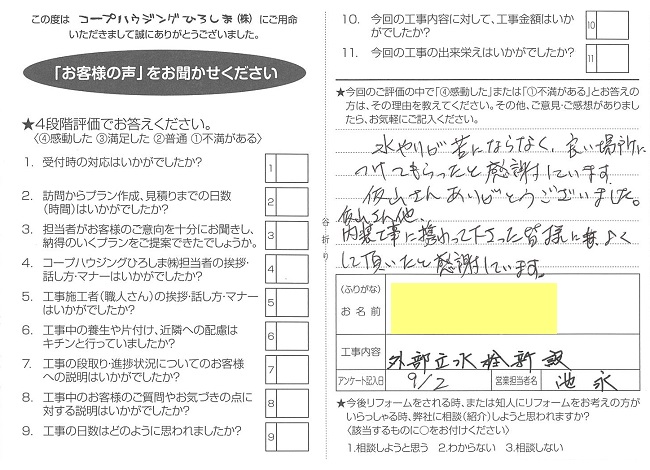 この度は コープハウジングひろしま(株) にご用命
いただきまして誠にありがとうございました。
「お客様の声」をお聞かせください
★4段階評価でお答えください。
〈④感動した ③満足した ②普通 ①不満がある〉
1. 受付時の対応はいかがでしたか? 1
2. 訪問からプラン作成、見積りまでの日数
(時間)はいかがでしたか? 2
3. 担当者がお客様のご意向を十分にお聞きし、
納得のいくプランをご提案できたでしょうか。 3
4. コープハウジングひろしま㈱担当者の挨拶・
話し方・マナーはいかがでしたか? 4
5. 工事施工者(職人さん)の挨拶・話し方・マナー
はいかがでしたか? 5
6. 工事中の養生や片付け、近隣への配慮は
キチンと行っていましたか? 6
7. 工事の段取り・進捗状況についてのお客様
への説明はいかがでしたか? 7
8. 工事中のお客様のご質問やお気づきの点に
対する説明はいかがでしたか? 8
9. 工事の日数はどのように思われましたか? 9
谷折り
10. 今回の工事内容に対して、工事金額はいか
がでしたか? 10
11. 今回の工事の出来栄えはいかがでしたか? 11
★今回のご評価の中で「④感動した」または「①不満がある」とお答えの
方は、その理由を教えてください。その他、ご意見・ご感想がありまし
たら、お気軽にご記入ください。
水やりが苦にならなく、良い場所に
つけてもらったと感謝しています。
さんありがとうございました。
さん他、
内装工事に携わって下さった皆様に
して頂いたと感謝しています。
(ふりがな)
お名前
工事内容 外部立水栓新設
アンケート記入日 9/2 営業担当者名 池永
★今後リフォームをされる時、または知人にリフォームをお考えの方が
いらっしゃる時、弊社に相談(紹介)しようと思われますか?
〈該当するものに○をお付けください〉
1.相談しようと思う 2.わからない 3.相談しない